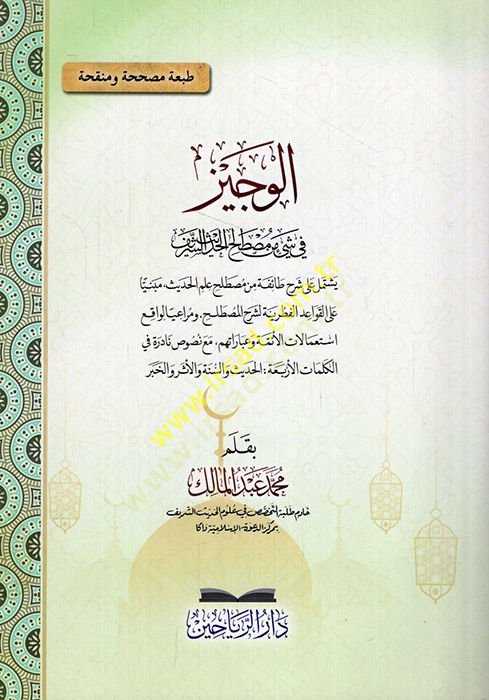 طبعة مصححة ومنقحة
الوجيز
في شيء من مصطلح الحديث الشريف
يشتمل على شرح طائفة من مصطلح علم الحديث، مبنيًا
على القواعد الفطرية لشرح المصطلح، ومراعيا لواقع
استعمالات الأئمة وعباراتهم، مع نصوص نادرة في
الكلمات الأربعة: الحديث والسنة والأثر والخبر
بقلم
محمد عبد المالك
خادم طلبة التخصص في علوم الحديث الشريف
بمركز الدعوة الإسلامية داكا
دار الرياحين